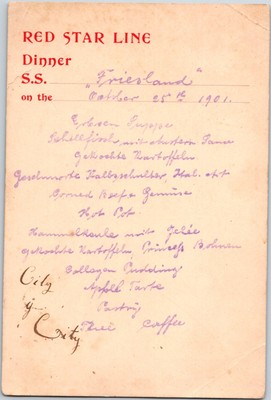 RED STAR LINE
Dinner
S.S. "Friesland"
on the October 25th 1901.
Erbsen Suppe
Schellfisch mit Austern Sauce
Gekochte Kartoffeln
Geschmorte Kalbsschulter
Corned Beef & Gemüse
Hot Pot
Hammelkeule mit Gelée
gekochte Kartoffeln, Princess Bohnen
Pudding
Apfel Tarte
Pastry
Thee Caffee
City
City